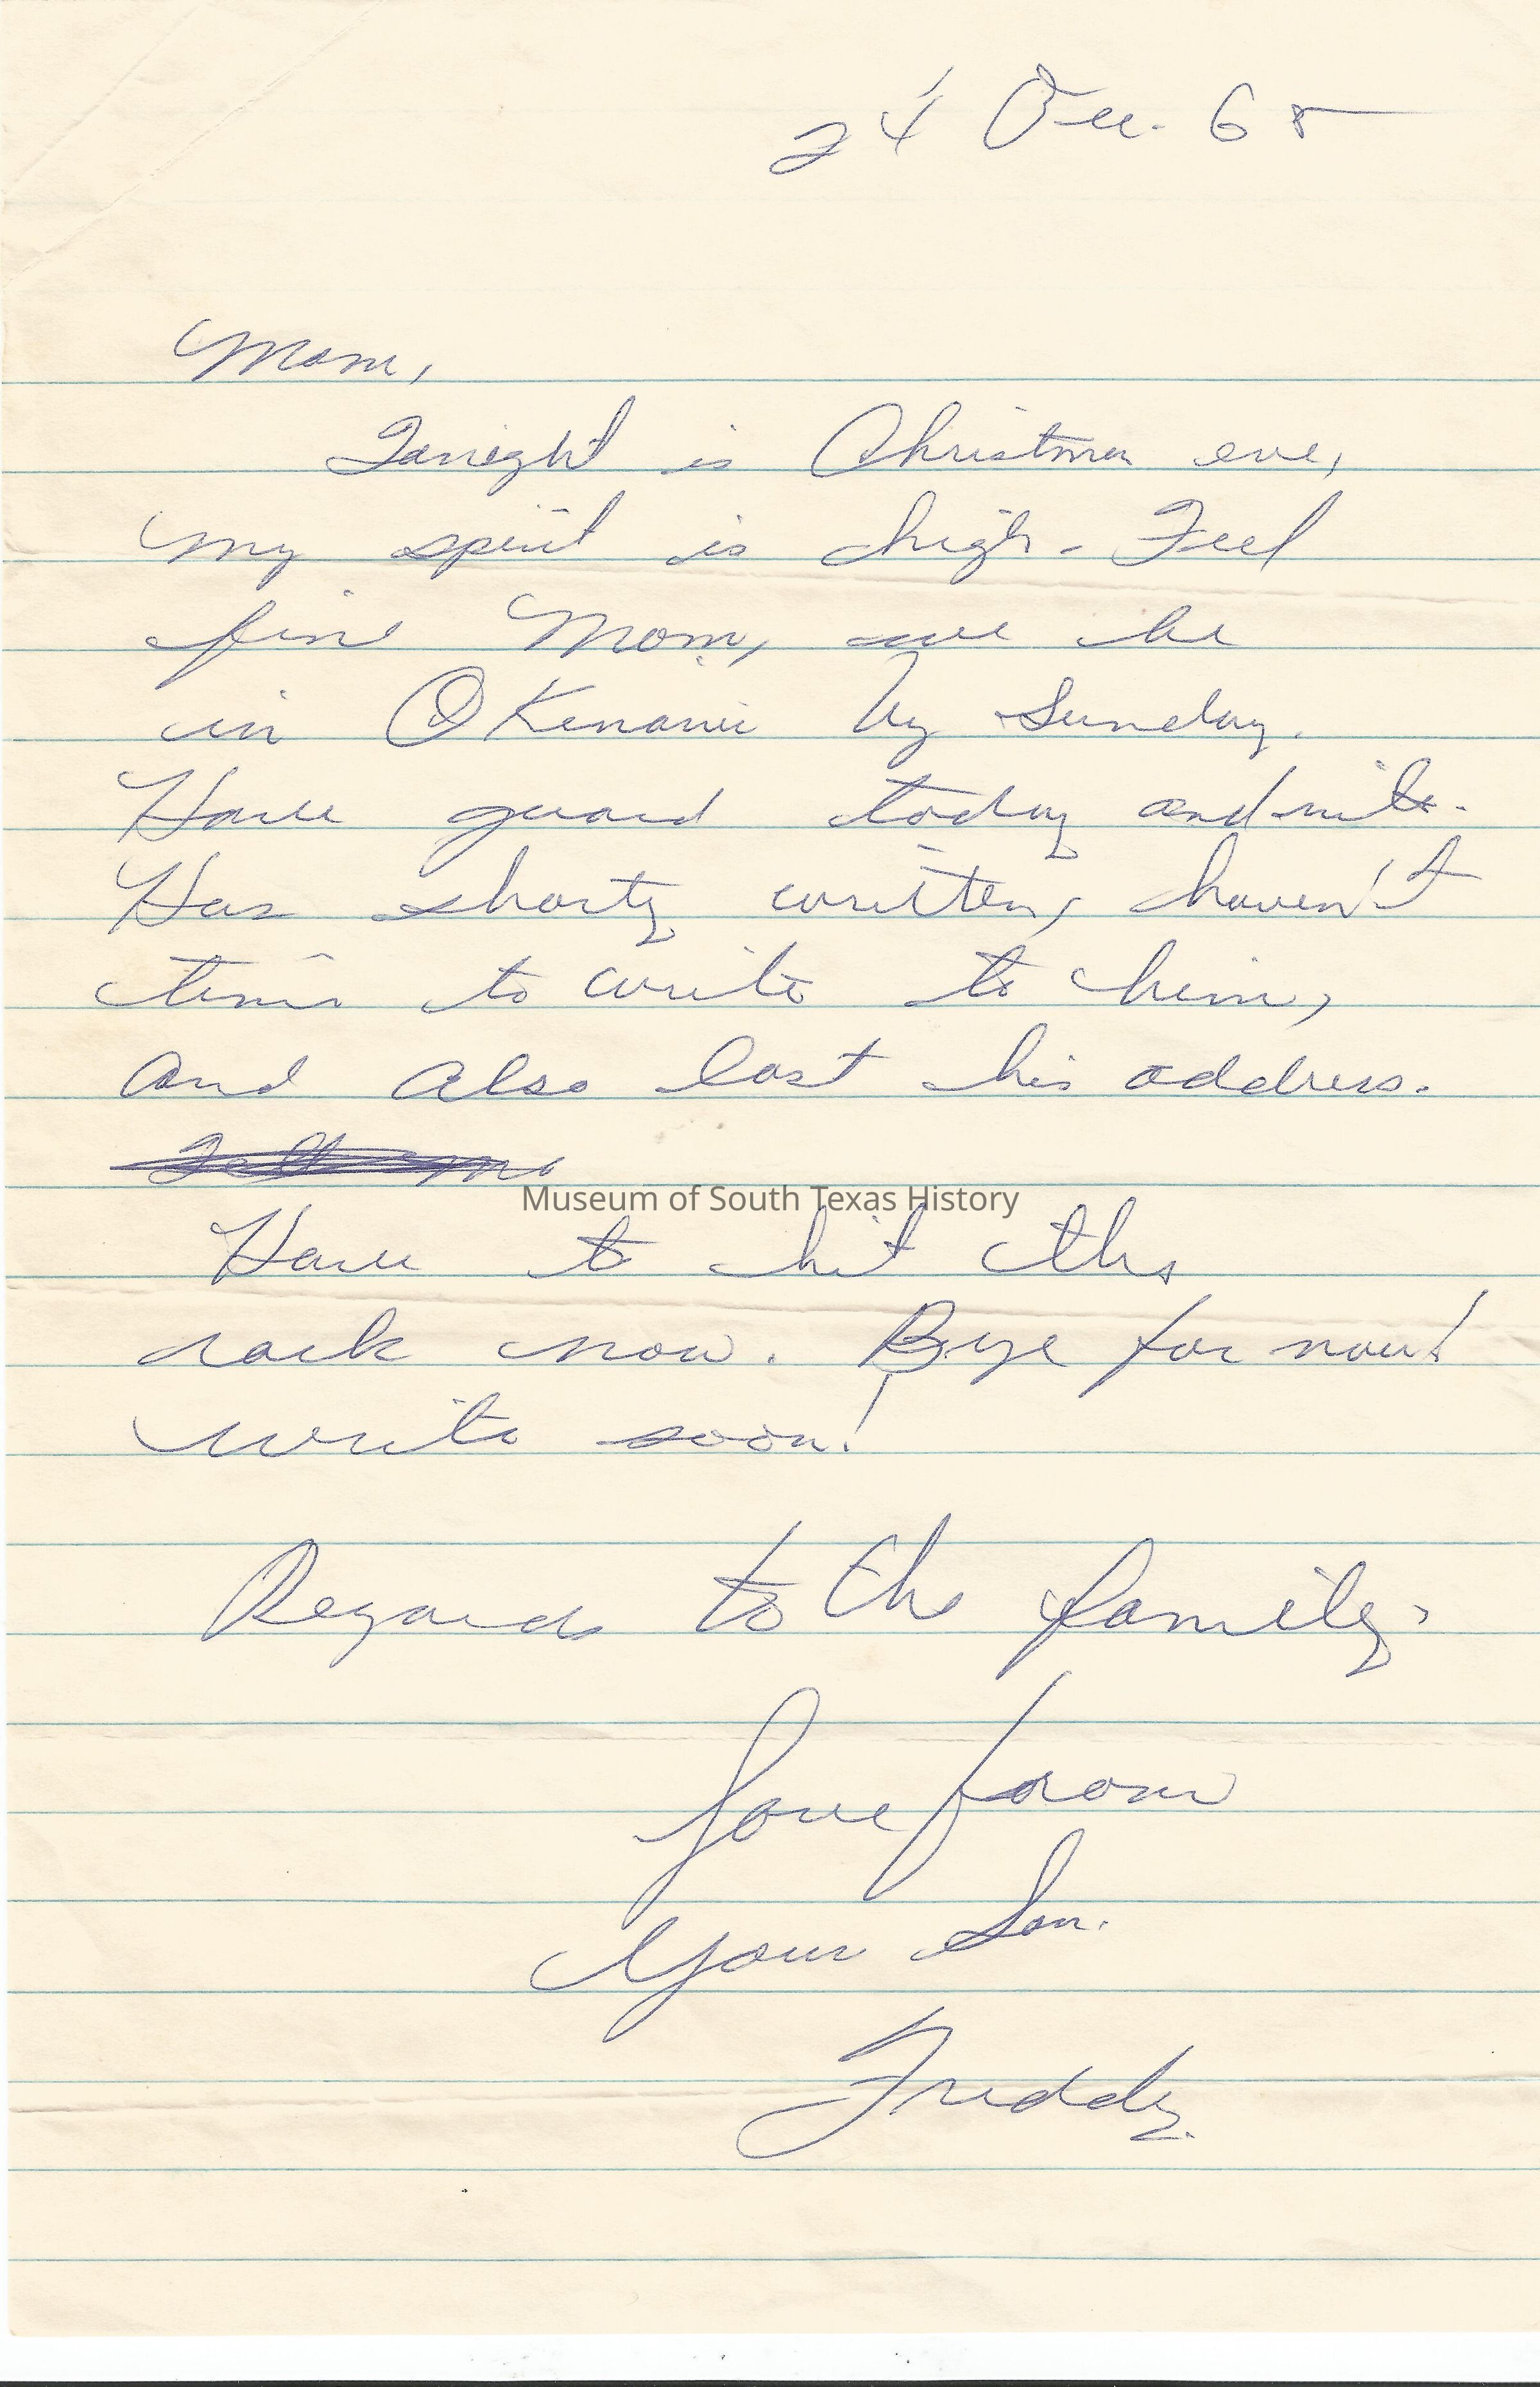 24 Dec. 65
Mom,
Tonight is Christmas eve,
my spirit is high - Feel
fine Mom, be
in OKenawi by Sunday.
Have guard today and nite.
Has shorty written, haven't
time to write to him,
and also lost his address.
Tell me
Museum of South Texas History
Have to hit the
rack now. Bye for now!
write soon!
Regards to the family.
Love from
Your Son.
Freddy.